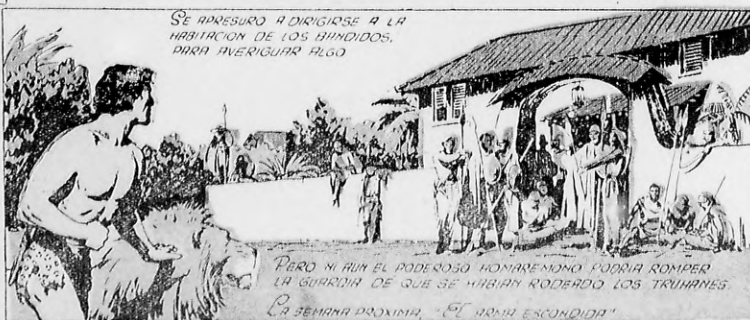 SE APRESURO A DIRIGIRSE A LA
HABITACION DE LOS BANDIDOS,
PARA AVERIGUAR ALGO
PERO NI AUN EL PODEROSO HOMBREMONO PODRIA ROMPER
LA GUARDIA DE QUE SE HABIAN RODEADO LOS TRUHANES.
LA SEMANA PROXIMA, "EL ARMA ESCONDIDA"